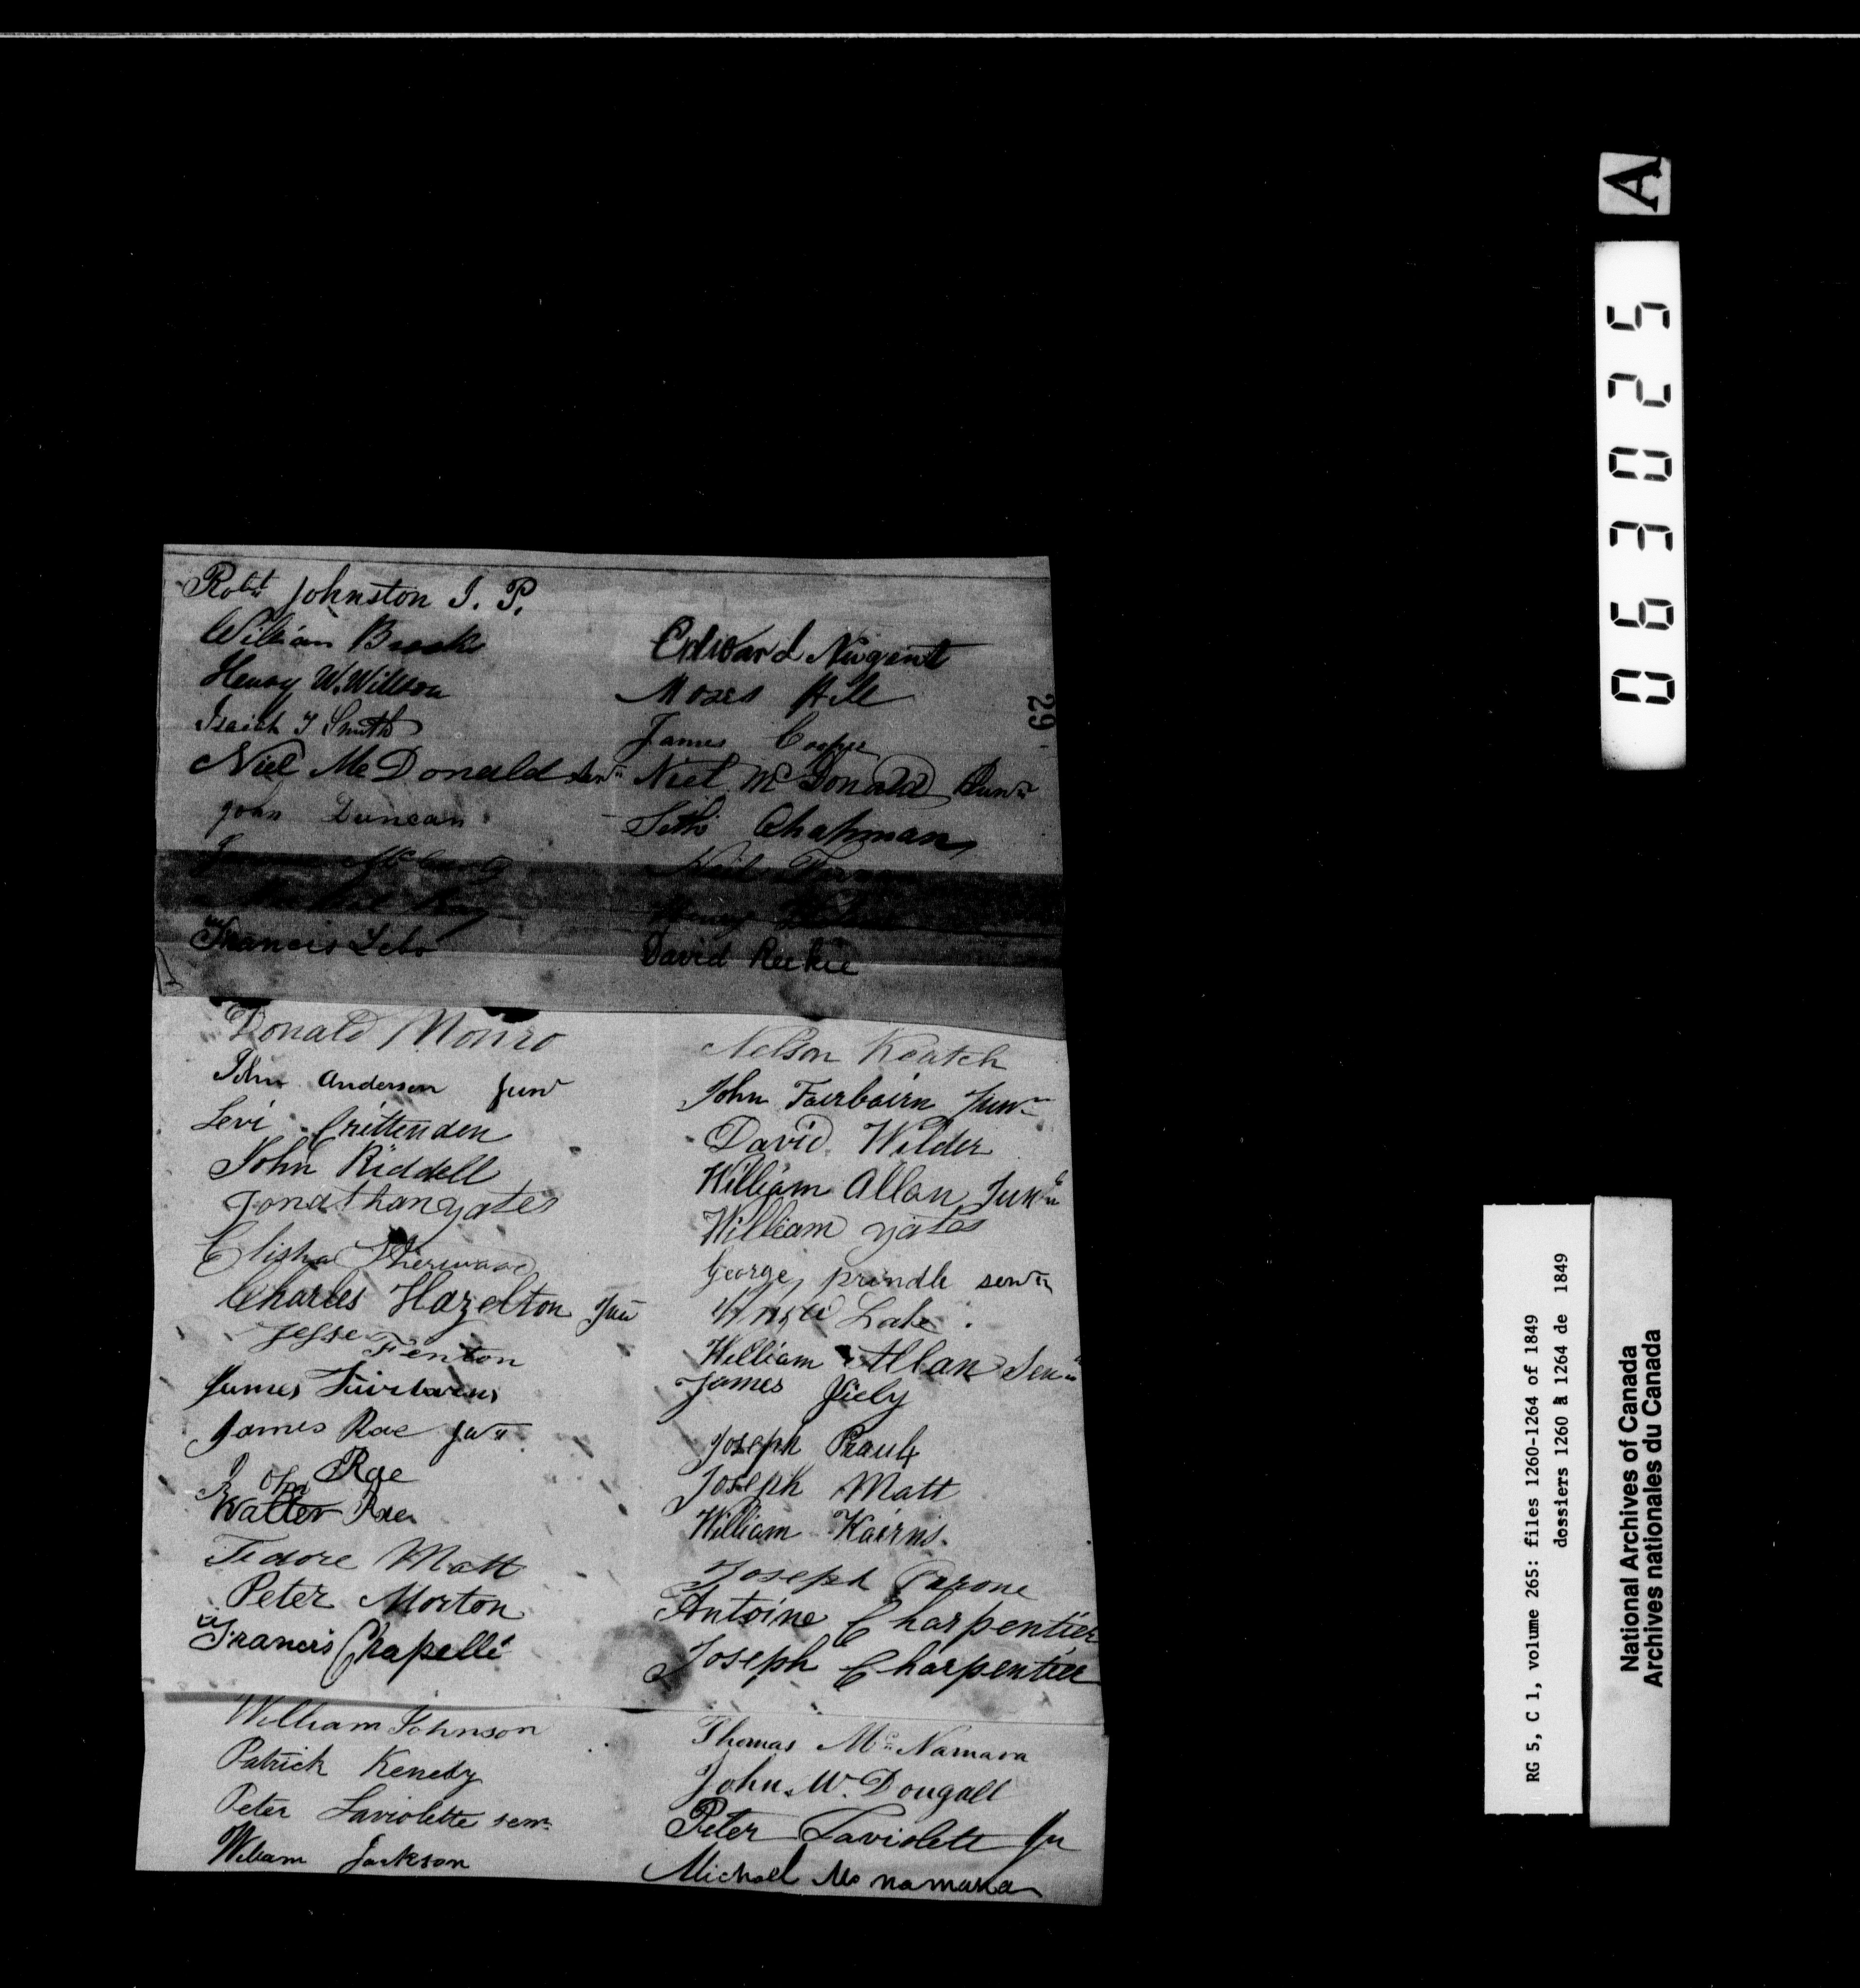 Robt Johnston J. P.
William Brooks
Henry W. Willson
Isaiah T Smith
Niel McDonald Senr
John Duncan
Francis Lebo
Edward Nugent
Moses Hill
James Cooper
Niel McDonald Junr
Seth Chapman
Neil
Henry
David Reekie
29
Donald Monro
John Anderson Junr
Levi Crittenden
John Riddell
Jonathan yates
Elisha
Charles Hazelton Jun
Jesse Fenton
James Fairbairns
James Rae Junr
John Rae
Walter Rae
Tedore Matt
Peter Morton
Francis Chapelle
Nelson Keatch
John Fairbairn Junr
David Wilder
William Allan Junr
William yates
George prindle senr
Lake
William Allan Senr
James
Joseph
Joseph Matt
William Kairns.
Joseph Parone
Antoine Charpentier
Joseph Charpentier
William Johnson
Patrick Kenedy
Peter Laviolette senr
William Jackson
Thomas McNamara
John McDougall
Peter Laviolett Jr
Michael Mc namara
A
063025
RG 5, C 1, volume 265: files 1260-1264 of 1849
dossiers 1260 à 1264 de 1849
National Archives of Canada
Archives nationales du Canada